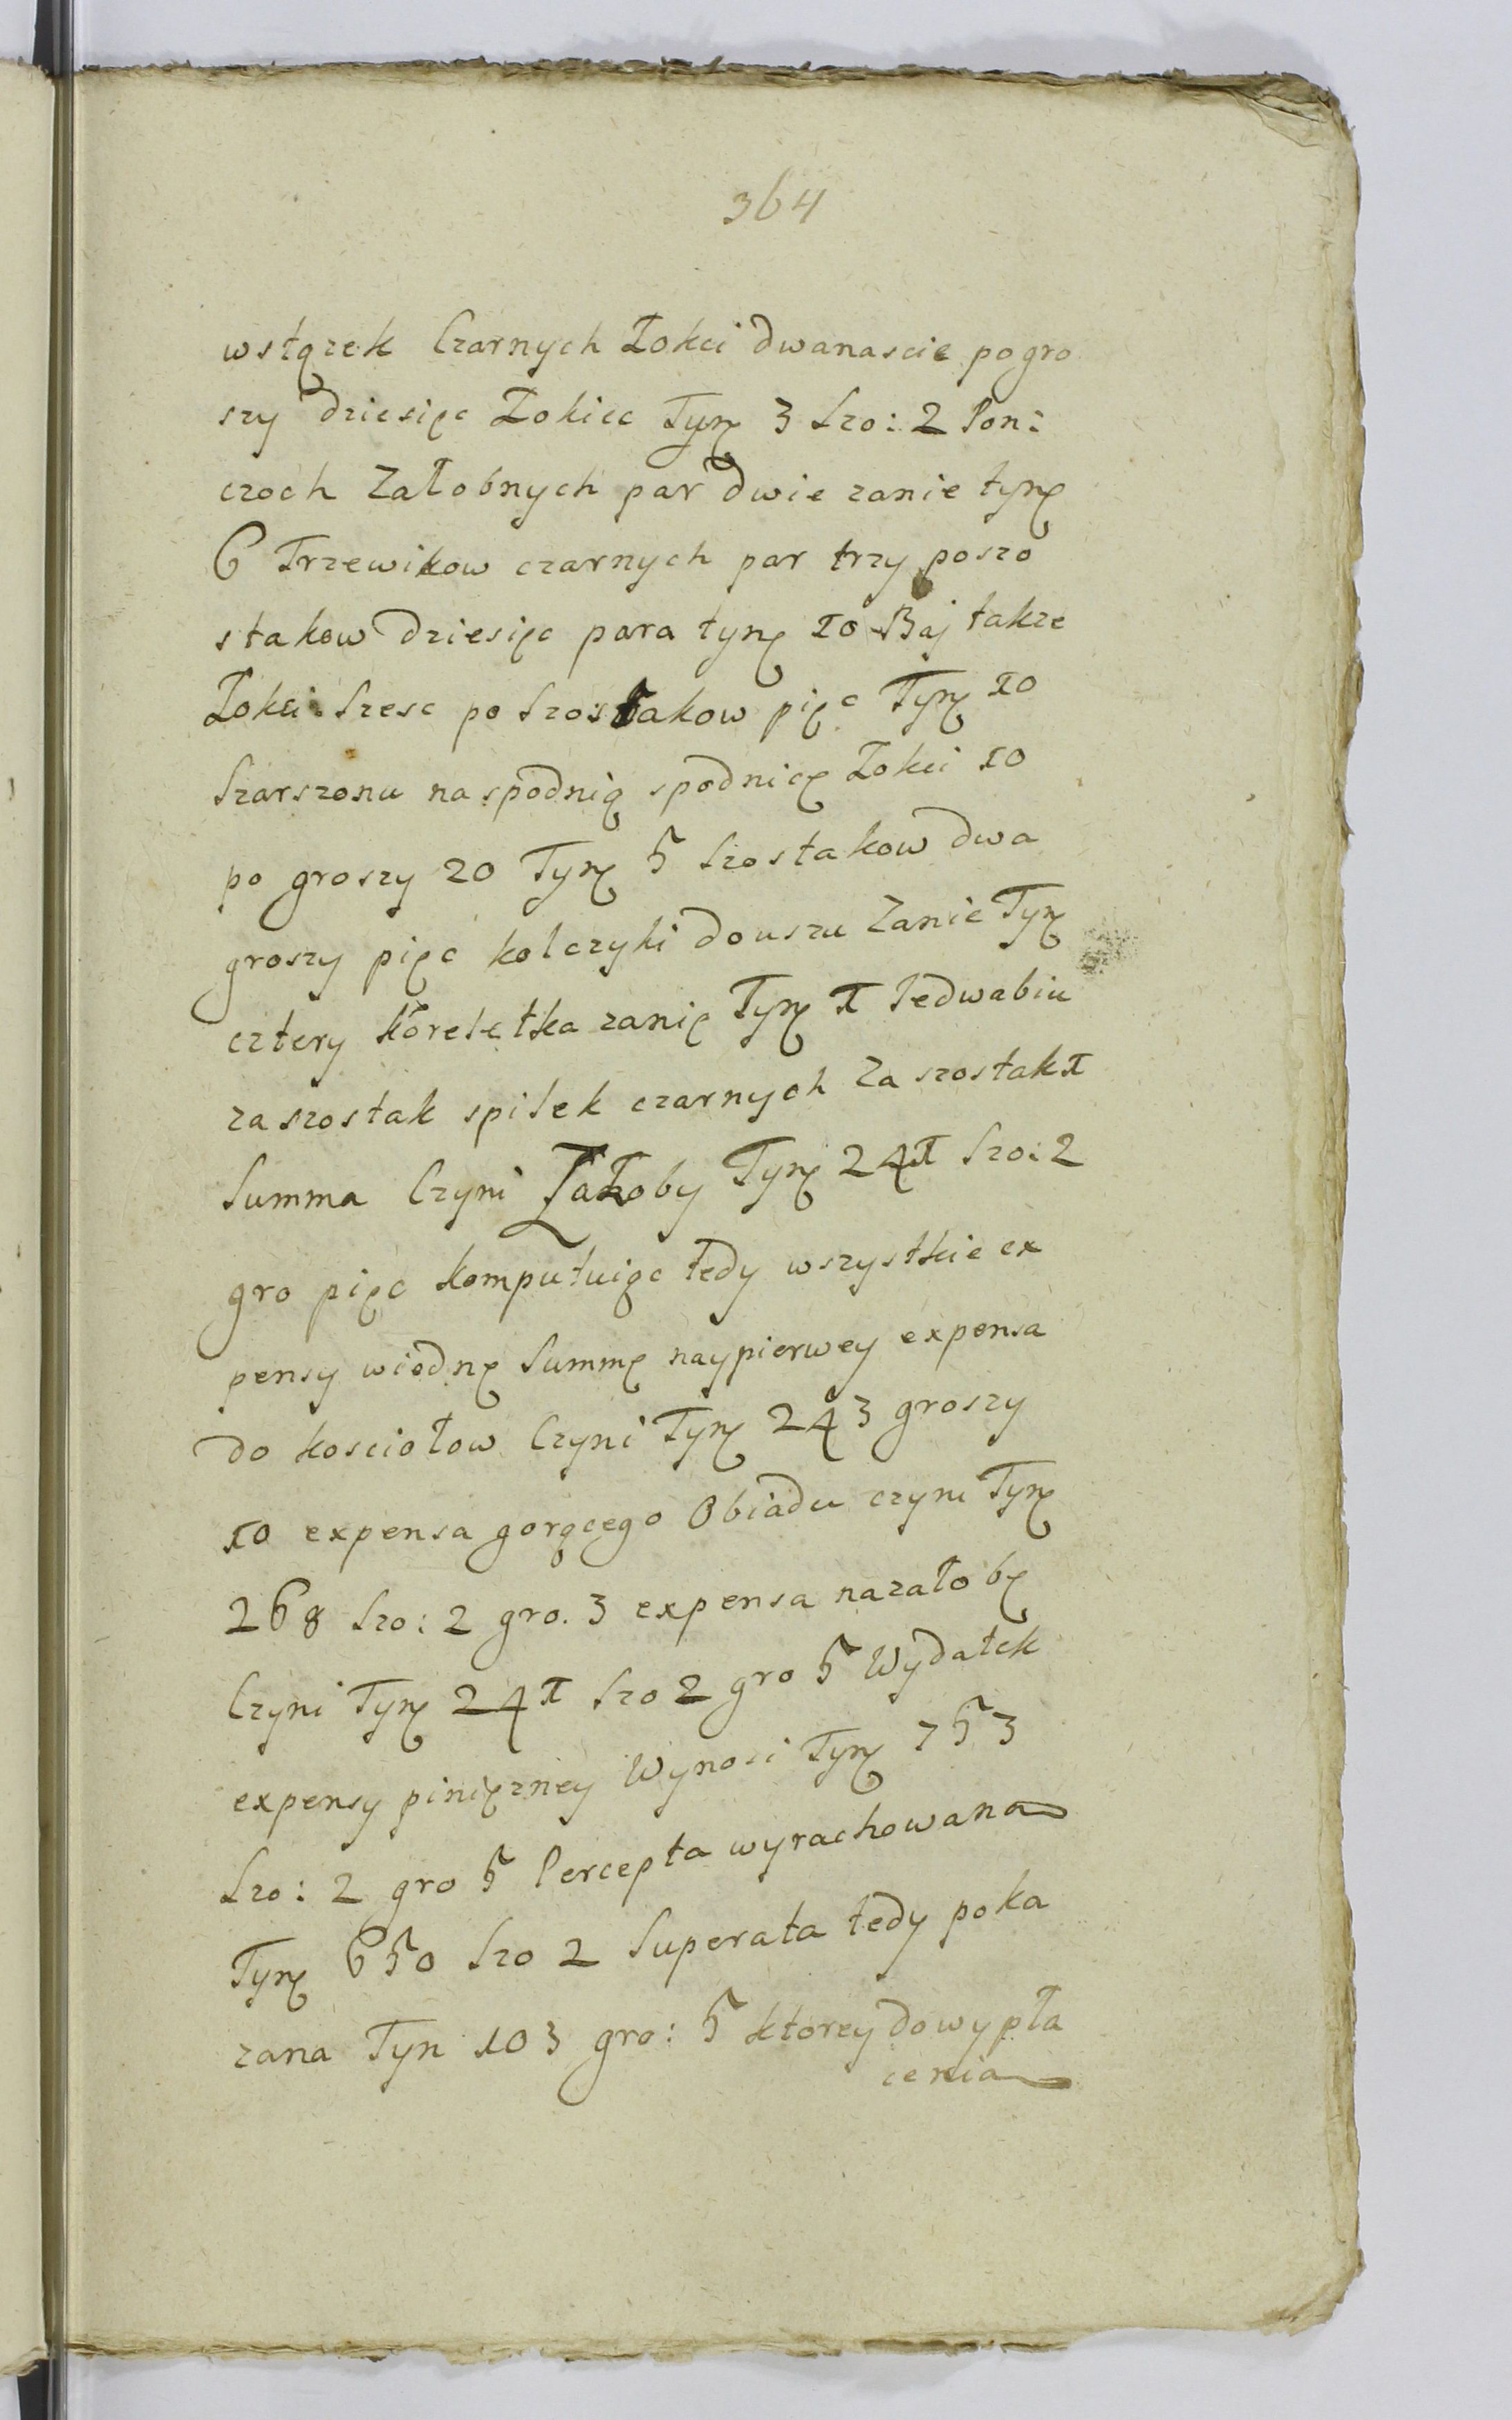 364
wstązek Czarnych Łokci dwanascie pogro
szy dziesięc Łokiec Tynę 3 Szo: 2 Pon:
czoch Załobnych par dwie zanie tynę
6 Trzewikow czarnych par trzy poszo
stakow dziesięc para tynę 10 Baj takze
Łokci Szesc po Szostakow pięc Tynę 10
Szarszonu naspodnią spodnicę Łokci 10
po groszy 20 Tynę 5 Szostakow dwa
groszy pięc kolczyki douszu Zanie Tynę
cztery koreletka zanię Tynę 1 Jedwabiu
zaszostak spilek czarnych Za szostak 1
Summa Czyni Załoby Tynę 241 Szo: 2
gro pięc komputuiąc tedy wszystkie ex
pensy wiednę Summę naypierwey expensa
do kosciołow Czyni Tynę 243 groszy
10 expensa gorącego Obiadu czyni Tynę
268 Szo: 2 gro. 3 expensa nazałobę
Czyni Tynę 241 Szo 2 gro 5 Wydatek
expensy pinięzney Wynosi Tynę 753
Szo: 2 gro 5 Percepta wyrachowana
Tynę 650 Szo 2 Superata tedy poka
zana Tyn 103 gro: 5 ktorey dowypła
cenia